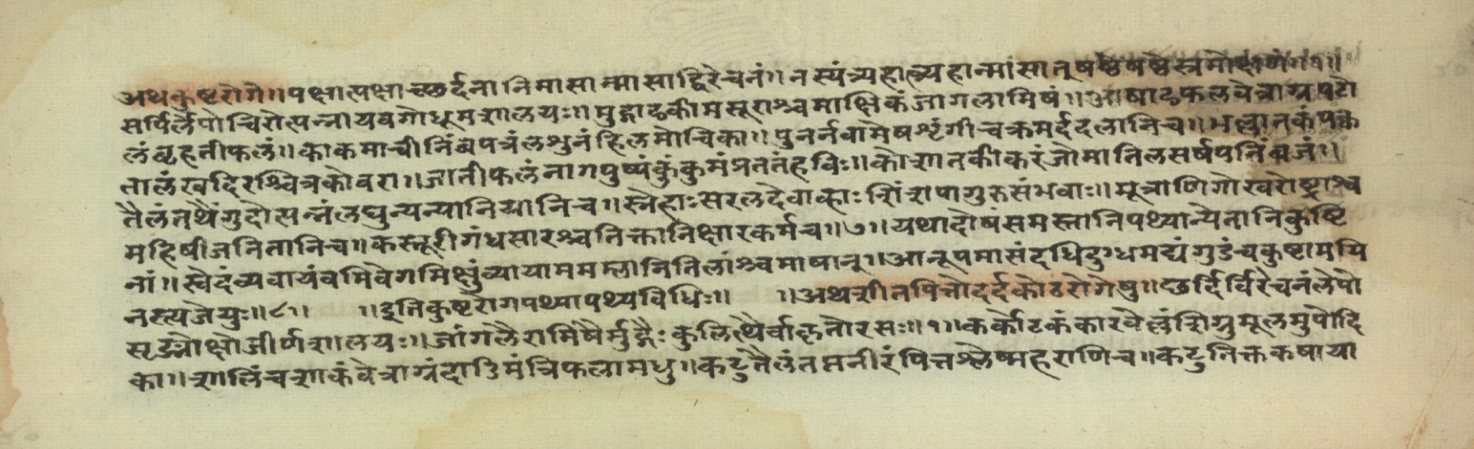 अथकुष्टरोगे॥पक्षात्पक्षाच्छर्दनानिमासान्मासाद्विरेचनं॥नस्यंत्र्यहात्र्यहान्मांसातूषष्ठेषष्ठेस्त्रमोक्षणं॥१॥
सर्पिर्लेपोचिरोत्पन्नायवगोधूमशालयः॥मुद्गाढकीमसूराश्चमाक्षिकंजांगलामिषं॥आषाढफलवेत्राग्रपटो
लंवृहतीफलं॥काकमाचीनिंबपत्रंलशुनंहिलमोचिका॥पुनर्नवामेषशृंगीचक्रमर्द्ददलानिच॥भल्लातकंपक्व
तालंखदिरश्चित्रकोवरा॥जातीफलंनागपुष्पंकुंकुमंप्रततंहविः॥कोशातकीकरंजोमातिलसर्षपनिंबजं॥
तैलंतथैंगुदोत्पन्नंलघुन्यन्यानियानिच॥स्नेहाःसरलदेवाव्हाःशिंशपागुरुसंभवाः॥मूत्राणिगोखरोष्ट्राश्व
महिषीजनितानिच॥कस्तूरीगंधसारश्चतिक्तानिक्षारकर्मच॥७॥यथादोषंसमस्तानिपथ्यान्येतानिकुष्टि
नां॥स्वेदंव्यवायंवमिवेगमिक्षुंव्यायाममम्लानितिलांश्चमाषान्॥आनूपमासंदधिदुग्धमद्यंगुडंचकुष्टामयि
नस्त्यजेयुः॥८॥ ॥इतिकुष्टरोगपथ्यापथ्यविधिः॥ ॥अथशीतपित्तोदर्दकोठरोगेषु॥छर्दिर्विरेचनंलेपो
सृङ्मोक्षोजीर्णशालयः॥जांगलैरामिषैर्मुद्गैःकुलित्थैर्वाकृतोरसः॥१॥कर्कोटकंकारवेल्लंशिग्रुमूलमुपोदि
का॥शालिंचशाकंवेत्राग्रंदाडिमंत्रिफलामधु॥कटुतैलंतप्तनीरंपित्तश्लेष्महराणिच॥कटुतिक्तकषाया